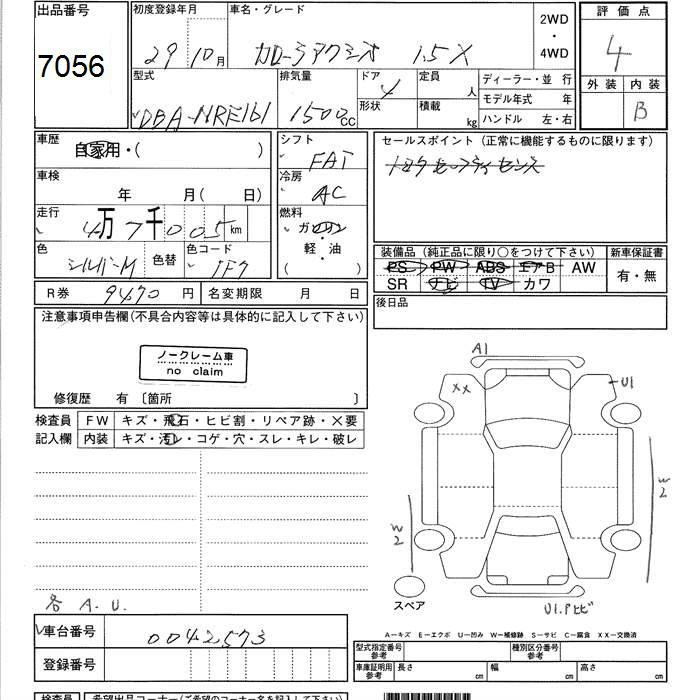 出品番号
7056
初度登録年月
29 10月
車名・グレード
カローラアクシオ 1.5X
2WD
・
4WD
評価点
4
外装 内装
B
型式
DBA-NRE161
排気量
1500cc
ドア
4
形状
定員
人
積載
kg
ディーラー・並行
モデル年式 年
ハンドル 左・右
車歴
自家用・( )
車検
年 月( 日)
走行
4万7千005km
色
シルバーM
色替
色コード
1F7
シフト
FAT
冷房
AC
燃料
ガソリン
・
軽・油
( )
セールスポイント(正常に機能するものに限ります)
トヨタセーフティセンス
装備品(純正品に限り○をつけて下さい)
PS PW ABS エアB AW
SR ナビ TV カワ
新車保証書
有・無
後日品
R券 9470円
名変期限 月 日
注意事項申告欄(不具合内容等は具体的に記入して下さい)
ノークレーム車
no claim
修復歴 有〔箇所 〕
検査員
記入欄
FW キズ・飛石・ヒビ割・リペア跡・X要
内装 キズ・汚レ・コゲ・穴・スレ・キレ・破レ
各 A.U.
車台番号
0042573
登録番号
A1
XX
U1
W2
W2
スペア
U1.Pヒビ
A-キズ E-エクボ U-凹み W-補修跡 S-サビ C-腐食 XX-交換済
型式指定番号
参考
種別区分番号
参考
車庫証明用
参考
長さ cm
幅 cm
高さ cm
検査員
希望出品コーナー(ご希望のコーナー名を記入して下さい)